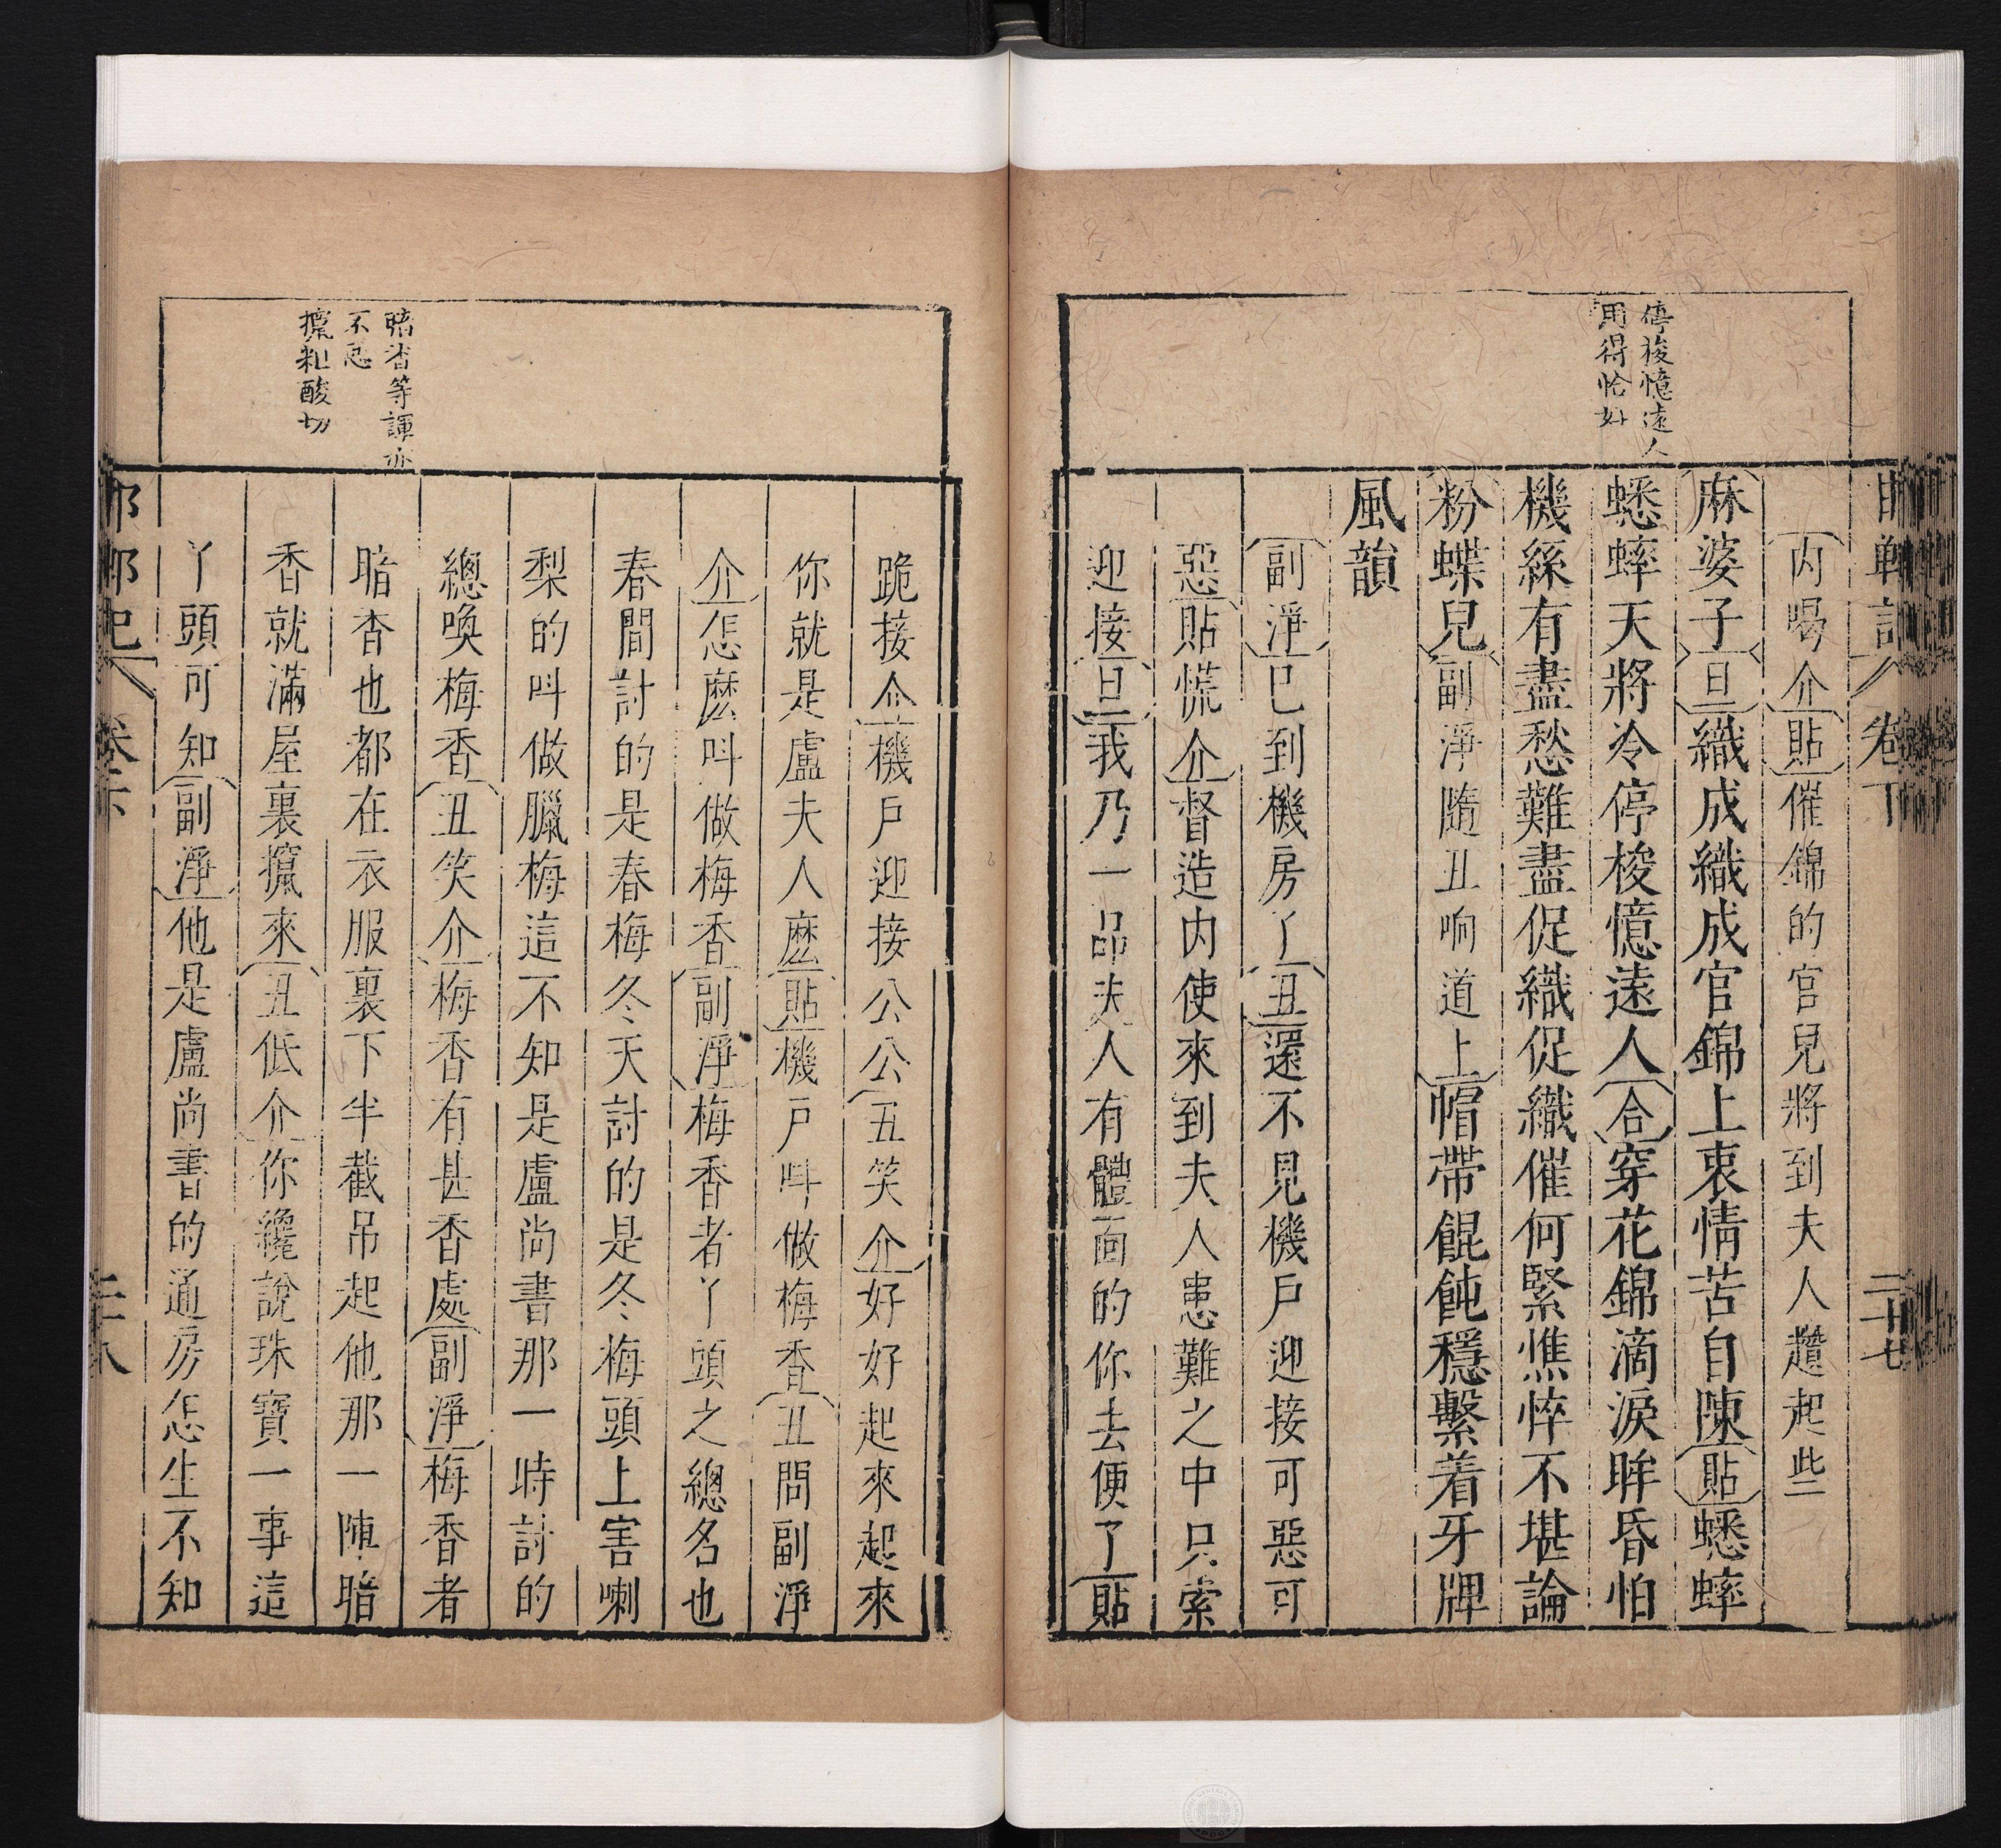 邯鄲記 卷下 二十七
停梭憶遠人
用得恰好
內喝介貼催錦的官兒將到夫人趲起些
麻婆子旦織成織成官錦上衷情苦自陳貼蟋蟀
蟋蟀天將冷停梭憶遠人合穿花錦滴淚眸昏怕
機絲有盡愁難盡促織促織催何緊憔悴不堪論
粉蝶兒副淨隨丑响道上帽帶餛飩穩繫着牙牌
風韻
副淨巳到機房了丑還不見機戶迎接可惡可
惡貼慌介督造內使來到夫人患難之中只索
迎接旦我乃一品夫人有體面的你去便了貼
暗香等諢亦
不惡
攛粗酸切
跪接介機戶迎接公公丑笑介好好起來起來
你就是盧夫人麽貼機戶呌做梅香丑問副淨
介怎麽呌做梅香副淨梅香者丫頭之總名也
春間討的是春梅冬天討的是冬梅頭上害喇
梨的呌做臘梅這不知是盧尚書那一時討的
總喚梅香丑笑介梅香有甚香處副淨梅香者
暗香也都在衣服裏下半截吊起他那一陣暗
香就滿屋裏攛來丑低介你纔說珠寶一事這
丫頭可知副淨他是盧尚書的通房怎生不知
邯鄲記 卷下 二十八